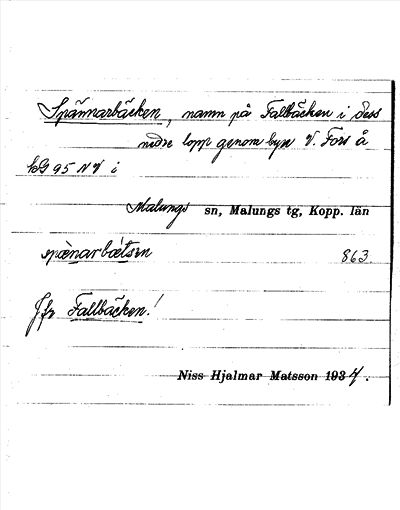 Spännarbäcken, namn på Fallbäcken i dess
nedre lopp genom byn V. Fors å
bl 95 NV i
Malungs sn, Malungs tg, Kopp. län
spænarbætsen 863
Jfr Fallbäcken!
Niss Hjalmar Matsson 1934.